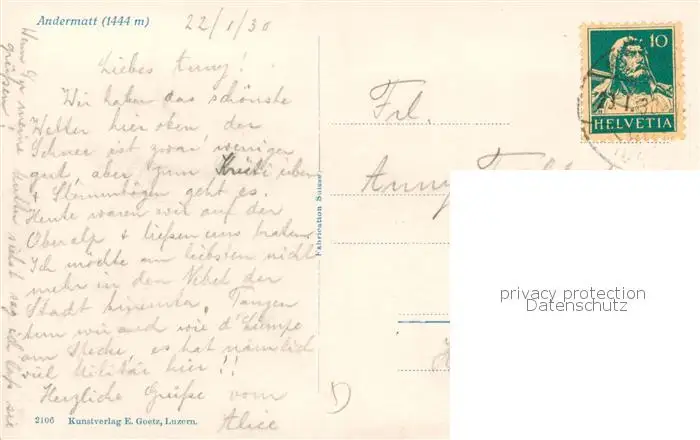 Andermatt (1444 m)
22/1/30
Liebes Anny!
Wir haben das schönste
Wetter hier oben, der
Schnee ist zwar weniger
gut, aber zum Kristi üben
+ Stemmbögen geht es.
Heute waren wir auf der
Oberalp + liessen uns braten.
Ich möchte am liebsten nicht
mehr in den Nebel der
Stadt hinunter. Tanzen
tun wir auch wie d'Lümpe
am Stecke, es hat nämlich
viel Militär hier!!
Herzliche Grüsse von
Alice
Wenn Du meine siehst sag ich lass sie
grüssen!
2106 Kunstverlag E. Goetz, Luzern.
Fabrication Suisse
10
HELVETIA
Frl.
Anny
privacy protection
Datenschutz